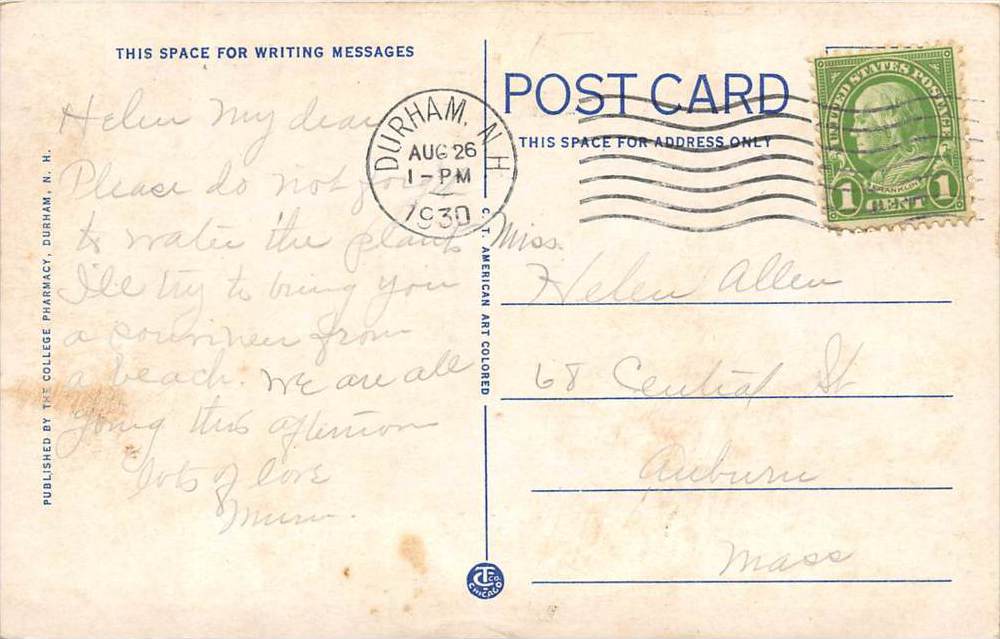 THIS SPACE FOR WRITING MESSAGES
Helen My dear
Please do not forget
to water the plants
I'll try to bring you
a souvineer from
a beach. We are all
going this afternoon
lots of love
Mum.
PUBLISHED BY THE COLLEGE PHARMACY, DURHAM, N. H.
C. T. AMERICAN ART COLORED
POST CARD
THIS SPACE FOR ADDRESS ONLY
DURHAM, N.H.
AUG 26
1-PM
1930
UNITED STATES POSTAGE
FRANKLIN
1 CENT 1
Miss.
Helen Allen
68 Central St
Auburn
Mass
CTCO.
CHICAGO